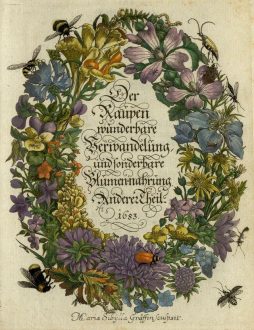 Der
Raupen
wunderbare
Verwandelung
und sonderbare
Blumennahrung
Andrer Theil.
1683.
Maria Sibylla Gräffin sculpsit.